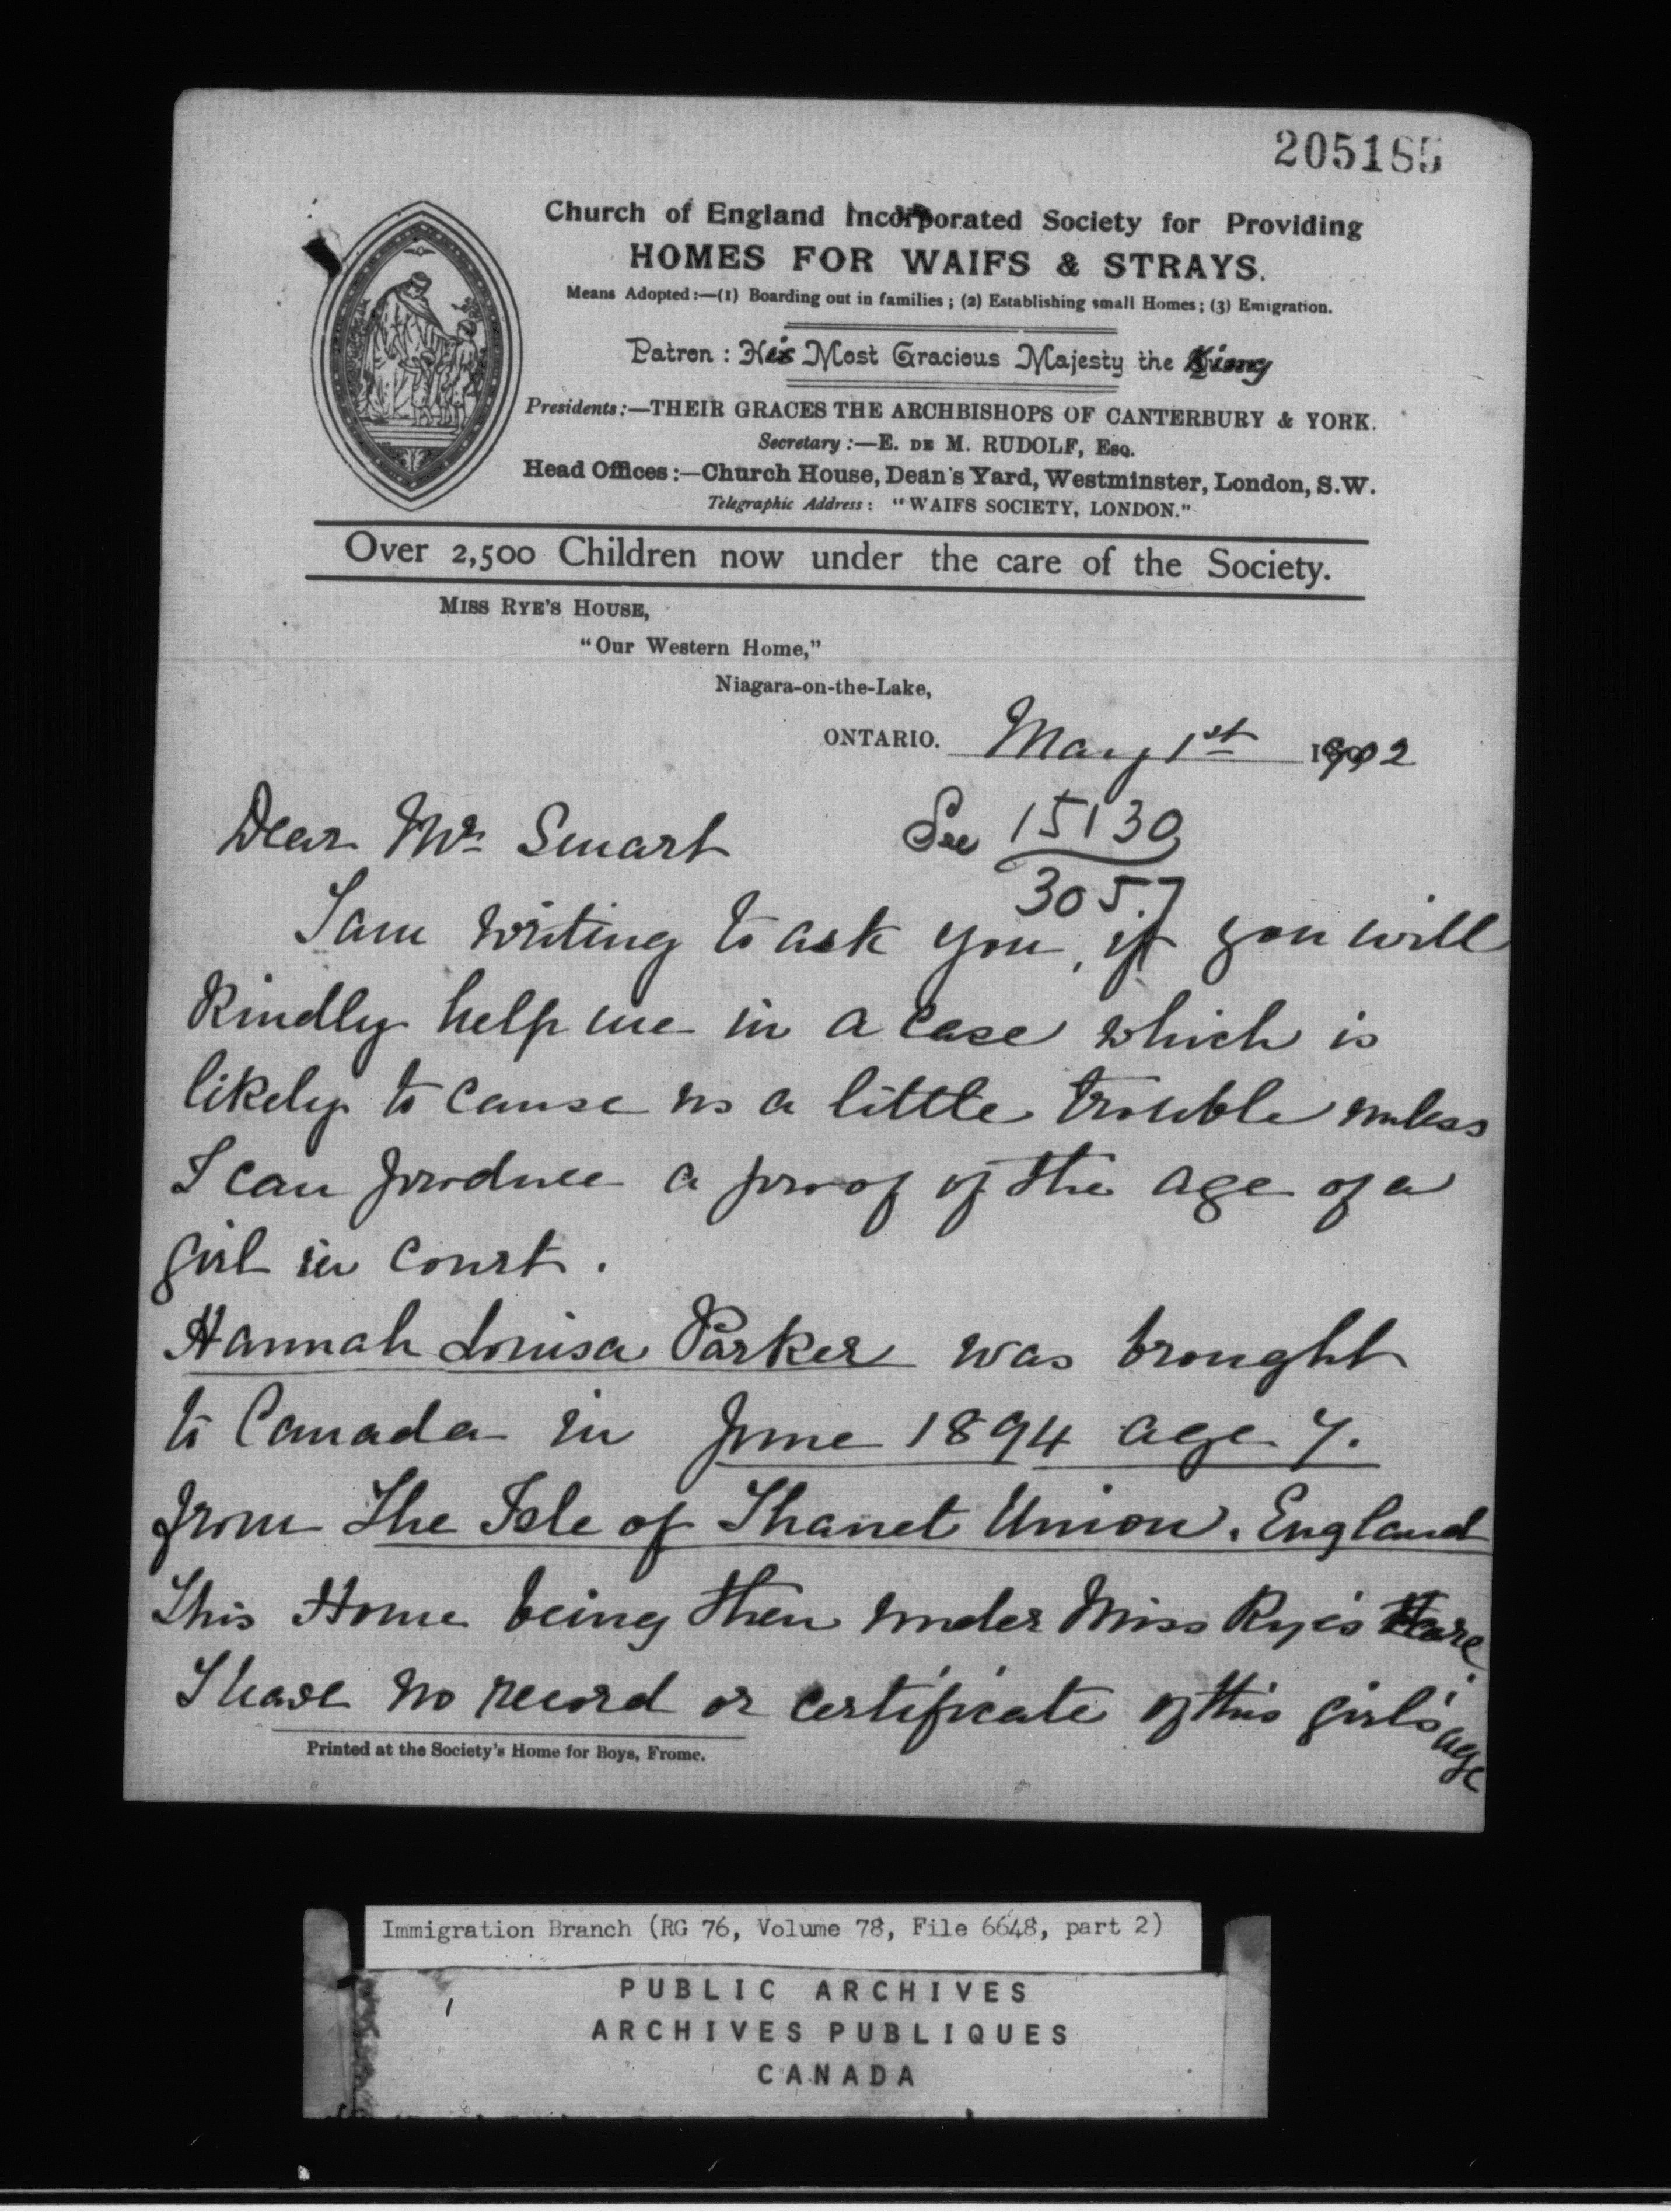 205185
Church of England Incorporated Society for Providing
HOMES FOR WAIFS & STRAYS.
Means Adopted:—(1) Boarding out in families; (2) Establishing small Homes; (3) Emigration.
Patron: His Most Gracious Majesty the King
Presidents:—THEIR GRACES THE ARCHBISHOPS OF CANTERBURY & YORK.
Secretary:—E. DE M. RUDOLF, ESQ.
Head Offices:—Church House, Dean's Yard, Westminster, London, S.W.
Telegraphic Address: "WAIFS SOCIETY, LONDON."
Over 2,500 Children now under the care of the Society.
MISS RYE'S HOUSE,
"Our Western Home,"
Niagara-on-the-Lake,
ONTARIO. May 1st 1902
Dear Mr Smart
See 15130
3057
I am writing to ask you, if you will
Kindly help me in a case which is
likely to cause us a little trouble unless
I can produce a proof of the age of a
girl in Court.
Hannah Louisa Parker was brought
to Canada in June 1894 age 7.
from The Isle of Thanet Union. England
This Home being then under Miss Rye's Care.
I have no record or certificate of this girl's age
Printed at the Society's Home for Boys, Frome.
Immigration Branch (RG 76, Volume 78, File 6648, part 2)
PUBLIC ARCHIVES
ARCHIVES PUBLIQUES
CANADA